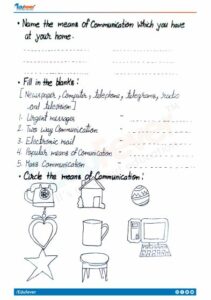 Edufever
• Name the means of Communication which you have
at your home.
• Fill in the blanks:
[Newspaper, Computer, Telephone, Telegrams, Radio
and Television]
1. Urgent messages
2. Two way Communication
3. Electronic mail
4. Popular means of Comunication
5. Mass Communication
• Circle the means of Communication:
/Edufever